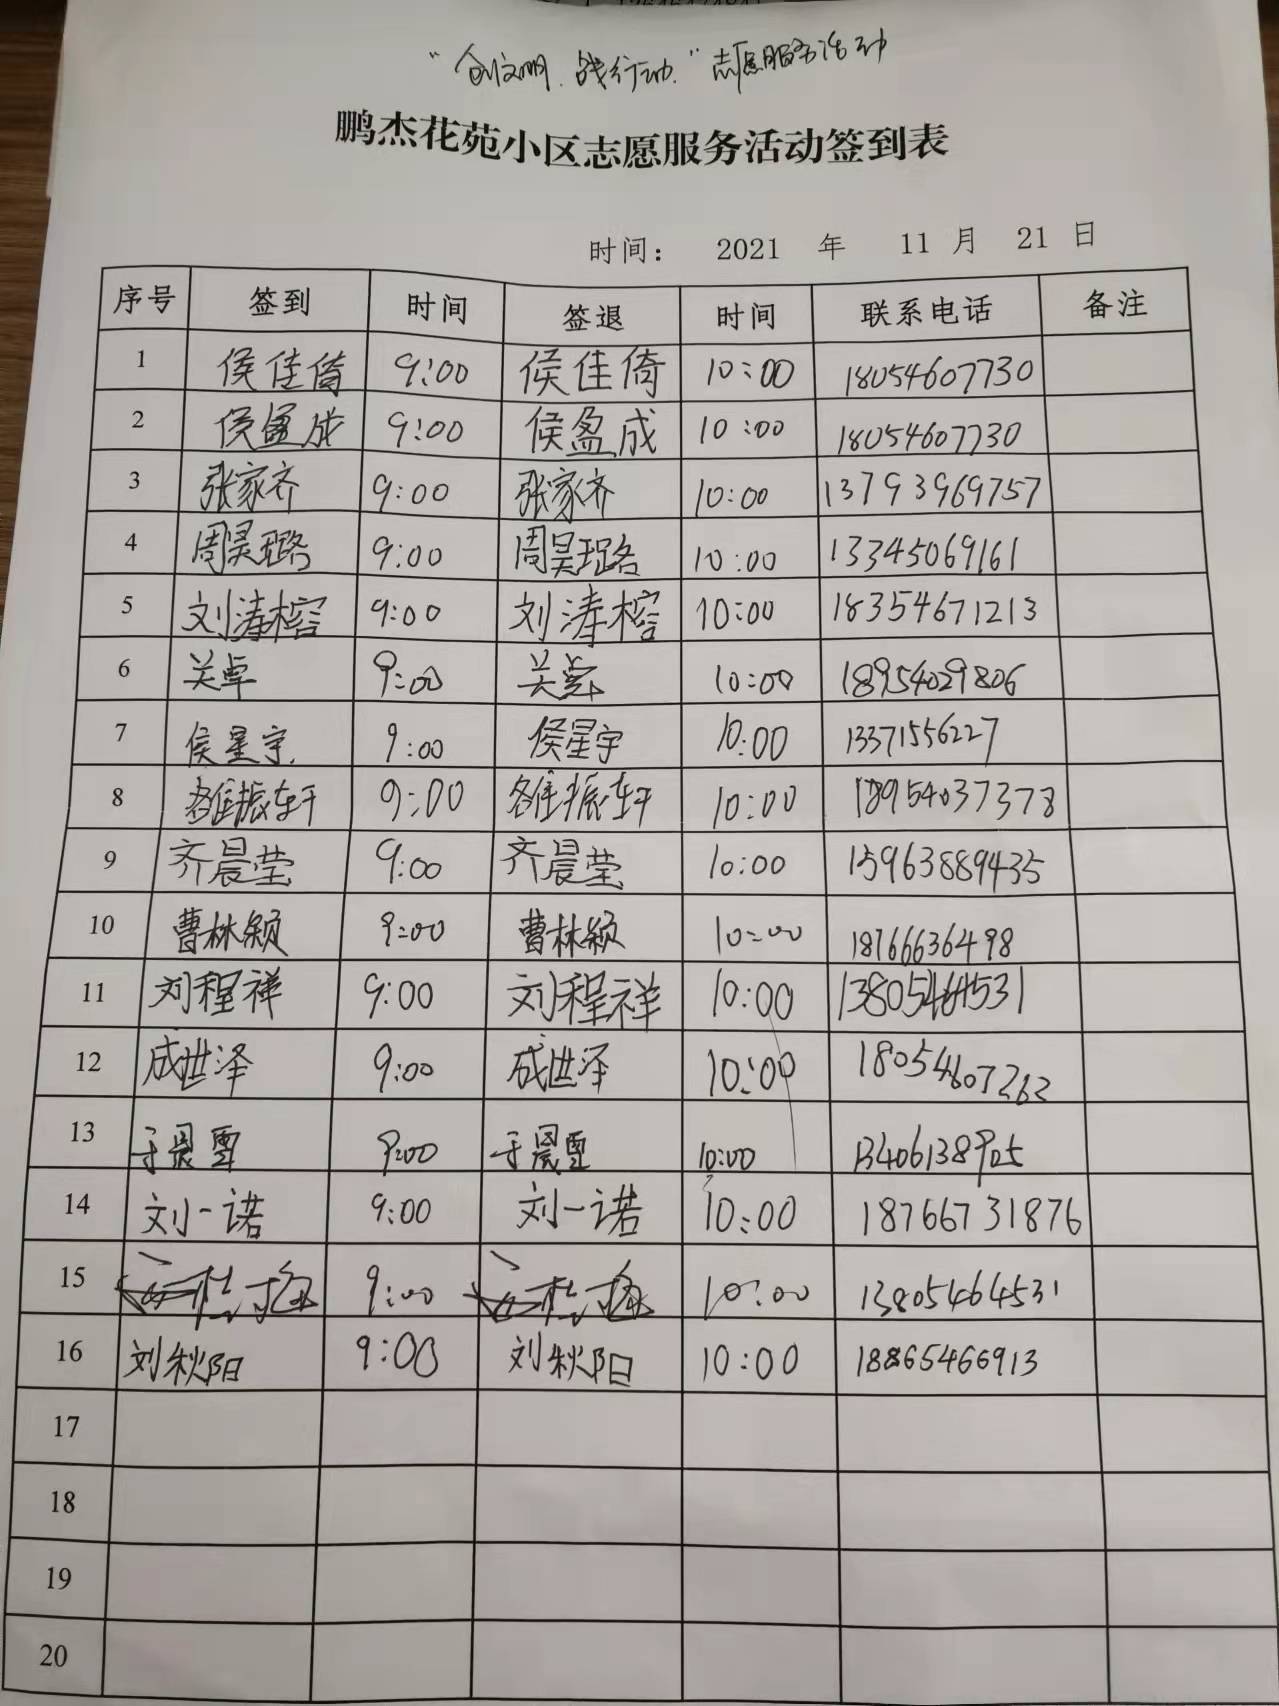 "创文明、践行动"志愿服务活动
鹏杰花苑小区志愿服务活动签到表
时间： 2021 年 11 月 21 日
序号 签到 时间 签退 时间 联系电话 备注
1 侯佳倚 9:00 侯佳倚 10:00 18054607730
2 侯盈成 9:00 侯盈成 10:00 18054607730
3 张家齐 9:00 张家齐 10:00 13793969757
4 周昊璐 9:00 周昊璐 10:00 13345069161
5 刘涛榕 9:00 刘涛榕 10:00 18354671213
6 关卓 9:00 10:00 18954029806
7 侯星宇 9:00 侯星宇 10:00 13371556227
8 9:00 10:00 18954037378
9 齐晨莹 9:00 齐晨莹 10:00 15963889435
10 曹林颖 9:00 曹林颖 10:00 18766636498
11 刘程祥 9:00 刘程祥 10:00 13805464531
12 成世泽 9:00 成世泽 10:00 18054607262
13 9:00 10:00
14 刘一诺 9:00 刘一诺 10:00 18766731876
15 9:00 10:00 13805464531
16 刘秋阳 9:00 刘秋阳 10:00 18865466913
17
18
19
20